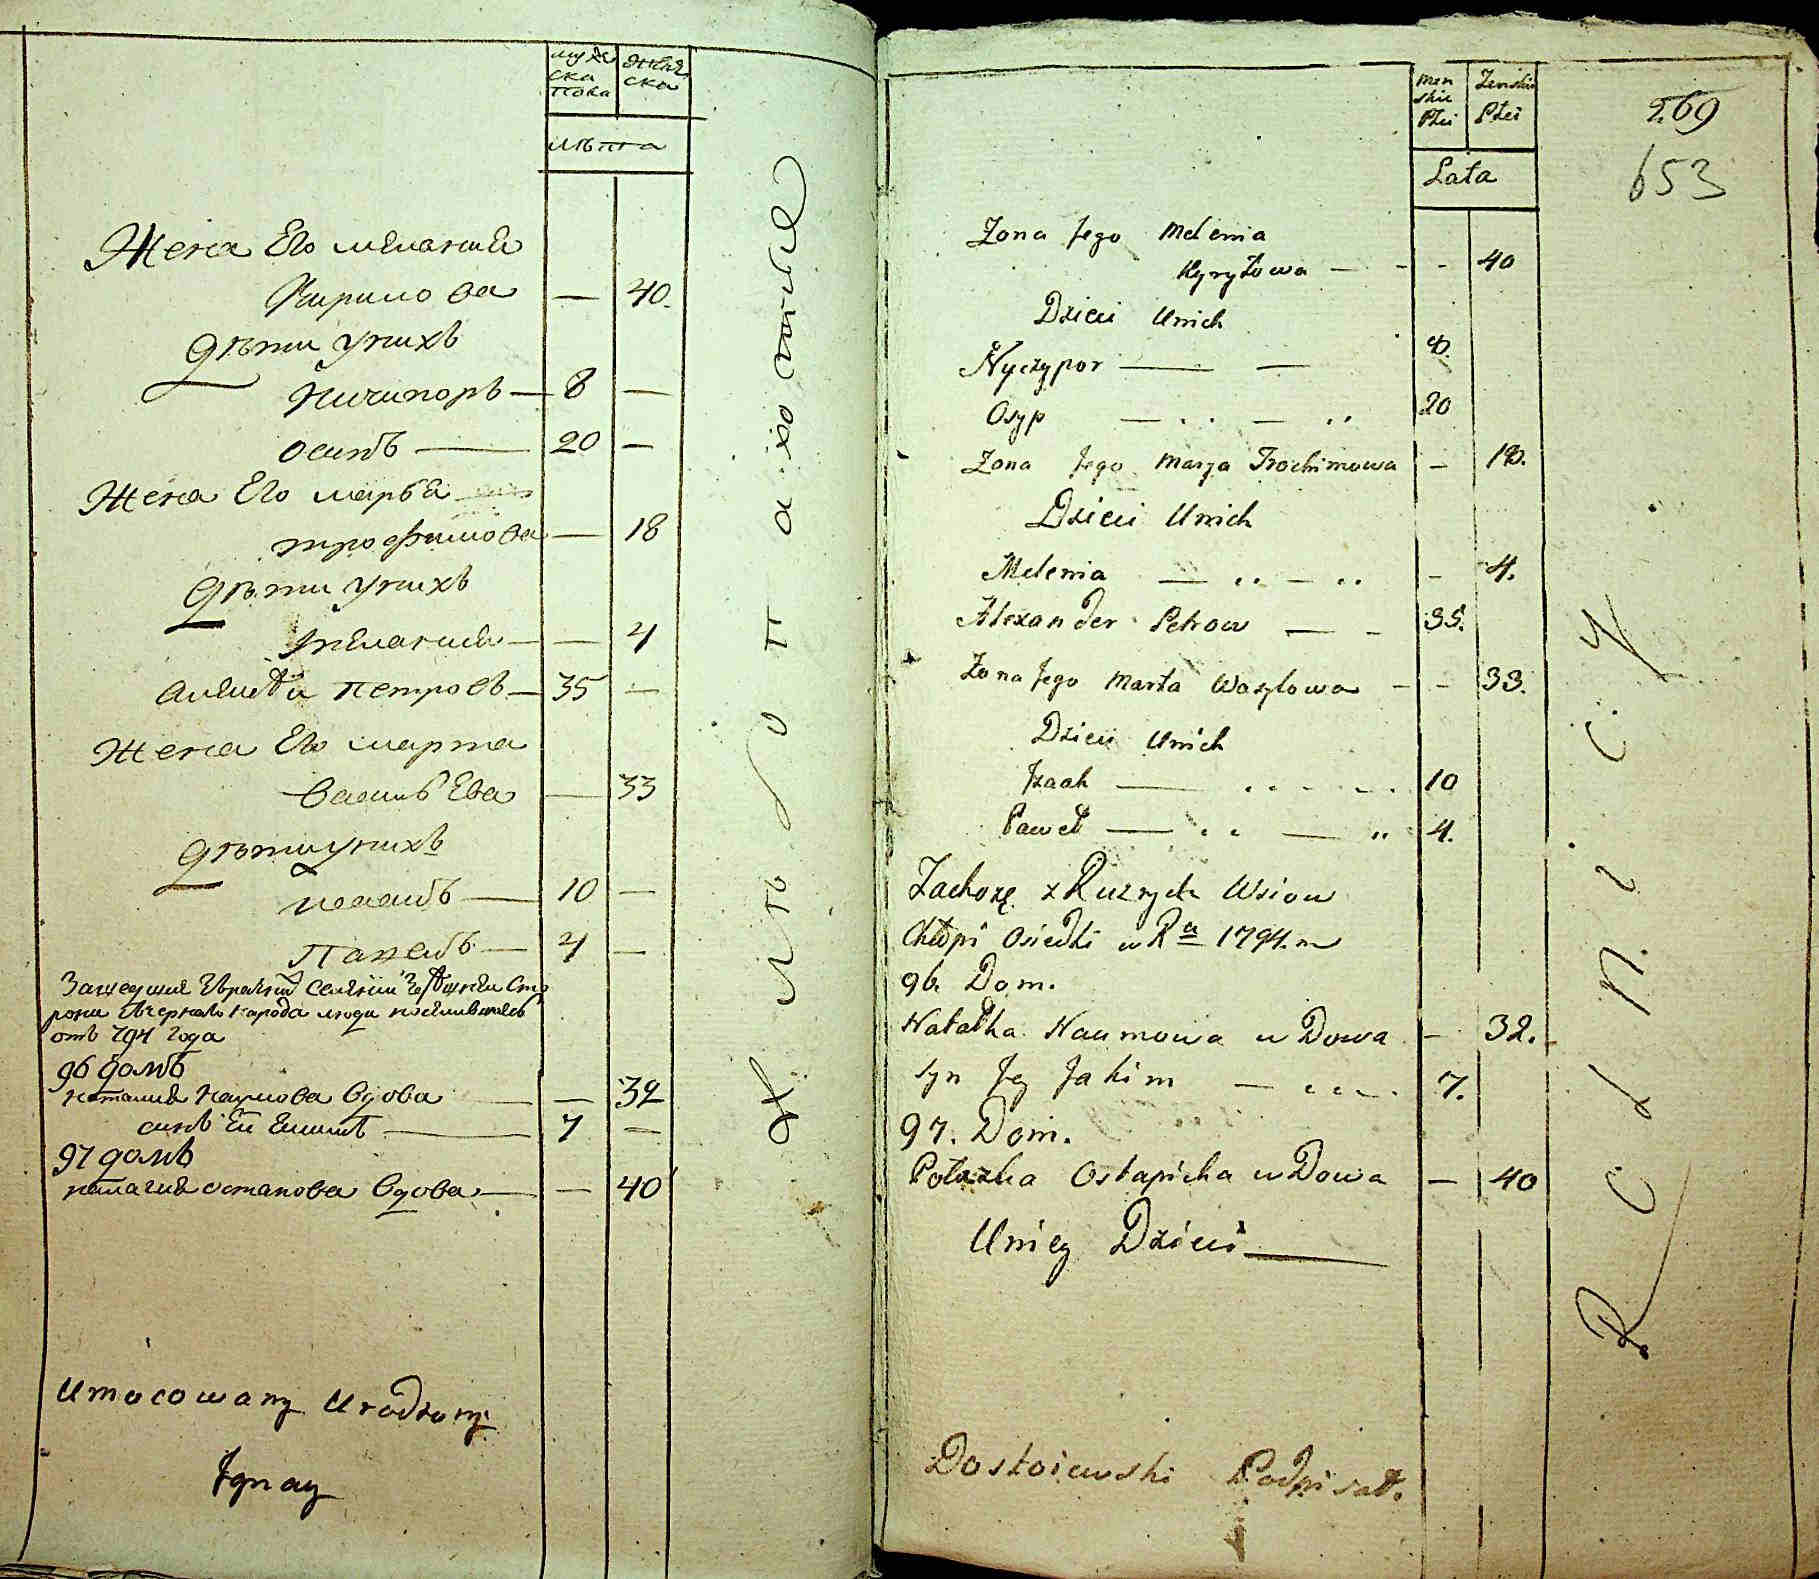 мужеска пола
женска
лѣта
Жена Его мелания
Кирилова — 40.
Дѣти у нихъ
Ничипоръ — 8 —
осипъ — 20 —
Жена Его марья
трофимова — 18
Дѣти у нихъ
мелания — — 4
петровъ — 35 —
Жена Его марта
Васильева — 33
Дѣти у нихъ
10 —
Павелъ — 4 —
народа люди
отъ 794 года
96 домъ
наталия наумова вдова — 32
сынъ Ей Екимъ — 7 —
97 домъ
палагия остапова вдова — — 40
Umocowany Urodzony
Ignacy
Męnskie Płci
Zenskie Płci
269
653
Lata
Zona Jego Melenia
Kyryłowa — - - 40
Dzieci Unich
Nyczypor — — 8.
Osyp — .. — .. 20
Zona Jego Marya Trochimowa — 18.
Dzieci Unich
Melenia — .. — .. - 4.
Alexander Petrow — - 35.
Zona Jego Marta Wasylowa - - 33.
Dzieci Unich
Izaak — 10
Paweł — .. — .. 4.
Zachozę z Ruznych Wsiow
Chłopi Osiedli w Ru 1794.m
96. Dom.
Natałka Naumowa wDowa - 32.
Syn Jey Jakim — 7.
97. Dom.
Połazka Ostapicha wDowa — 40
Uniey Dzieci —
Dostoiewski Podpisał.